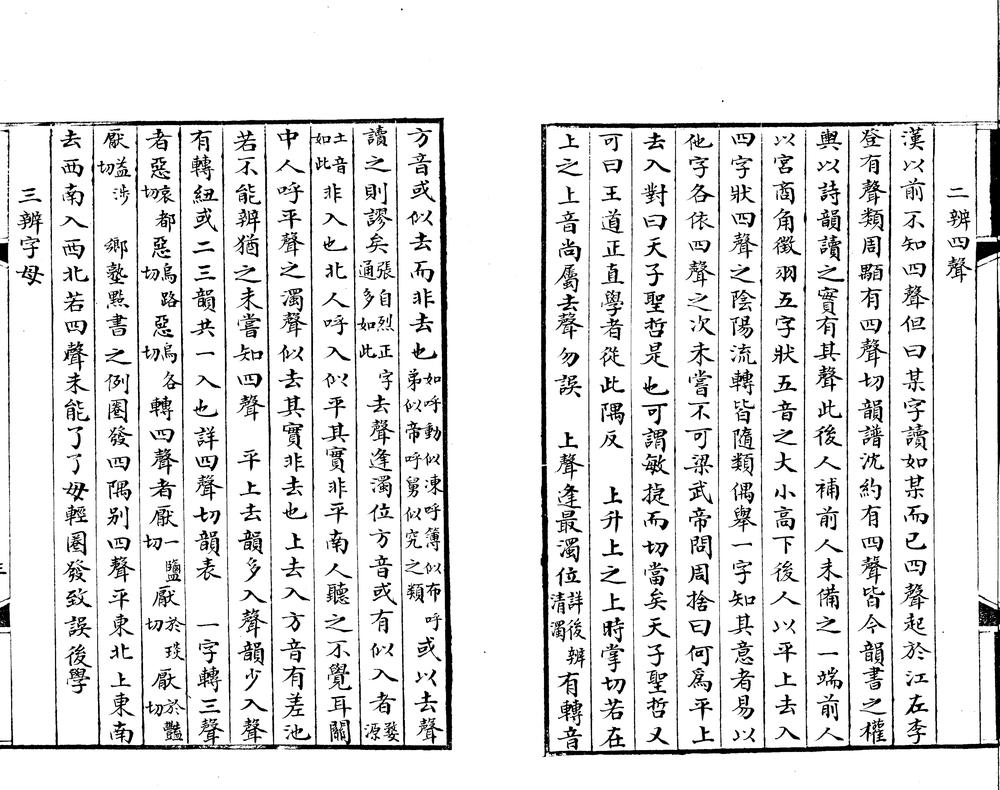 二辨四聲
漢以前不知四聲但曰某字讀如某而已四聲起於江左李
登有聲類周顒有四聲切韻譜沈約有四聲皆今韻書之權
輿以詩韻讀之實有其聲此後人補前人未備之一端前人
以宮商角徵羽五字狀五音之大小高下後人以平上去入
四字狀四聲之陰陽流轉皆隨類偶舉一字知其意者易以
他字各依四聲之次未嘗不可梁武帝問周捨曰何爲平上
去入對曰天子聖哲是也可謂敏捷而切當矣天子聖哲又
可曰王道正直學者從此隅反 上升上之上時掌切若在
上之上音尚屬去聲勿誤 上聲逢最濁位詳後辨清濁有轉音
方音或似去而非去也如呼動似凍呼簿似布呼弟似帝呼舅似究之類或以去聲
讀之則謬矣張自烈正字通多如此 去聲逢濁位方音或有似入者婺源
土音如此非入也北人呼入似平其實非平南人聽之不覺耳關
中人呼平聲之濁聲似去其實非去也上去入方音有差池
若不能辨猶之未嘗知四聲 平上去韻多入聲韻少入聲
有轉紐或二三韻共一入也詳四聲切韻表 一字轉三聲
者惡哀都切惡烏路切惡烏各切轉四聲者厭一鹽切厭於琰切厭於豔切
厭益涉切 鄉塾點書之例圈發四隅别四聲平東北上東南
去西南入西北若四聲未能了了毋輕圈發致誤後學
三辨字母